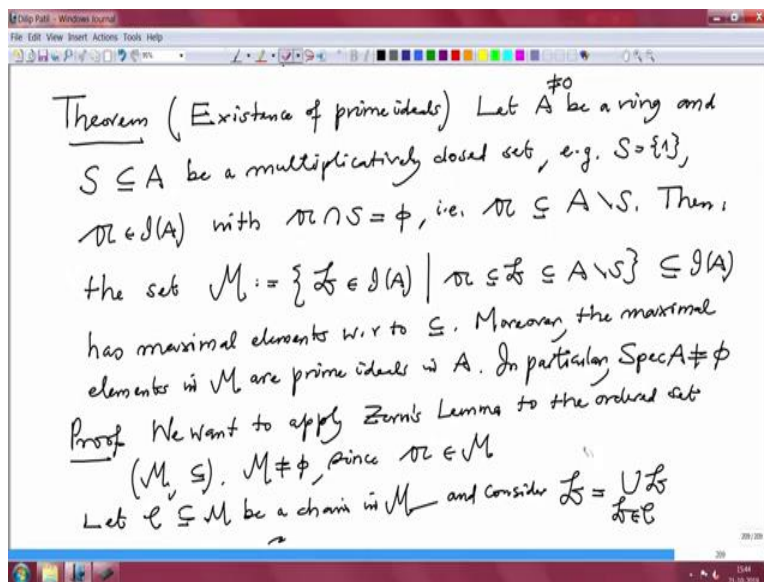 Dilip Patil - Windows Journal
File Edit View Insert Actions Tools Help
Theorem (Existence of prime ideals) Let A ≠0 be a ring and
S ⊆ A be a multiplicatively closed set, e.g. S = {1},
𝔞 ∈ 𝓘(A) with 𝔞 ∩ S = ϕ, i.e. 𝔞 ⊆ A \ S. Then,
the set M := { 𝔟 ∈ 𝓘(A) | 𝔞 ⊆ 𝔟 ⊆ A \ S } ⊆ 𝓘(A)
has maximal elements w.r to ⊆. Moreover, the maximal
elements in M are prime ideals in A. In particular, Spec A ≠ ϕ
Proof We want to apply Zorn's Lemma to the ordered set
(M, ⊆). M ≠ ϕ, since 𝔞 ∈ M
Let 𝒞 ⊆ M be a chain in M and consider 𝔟 = ∪ 𝔟
𝔟∈𝒞
209/209
209
15:44